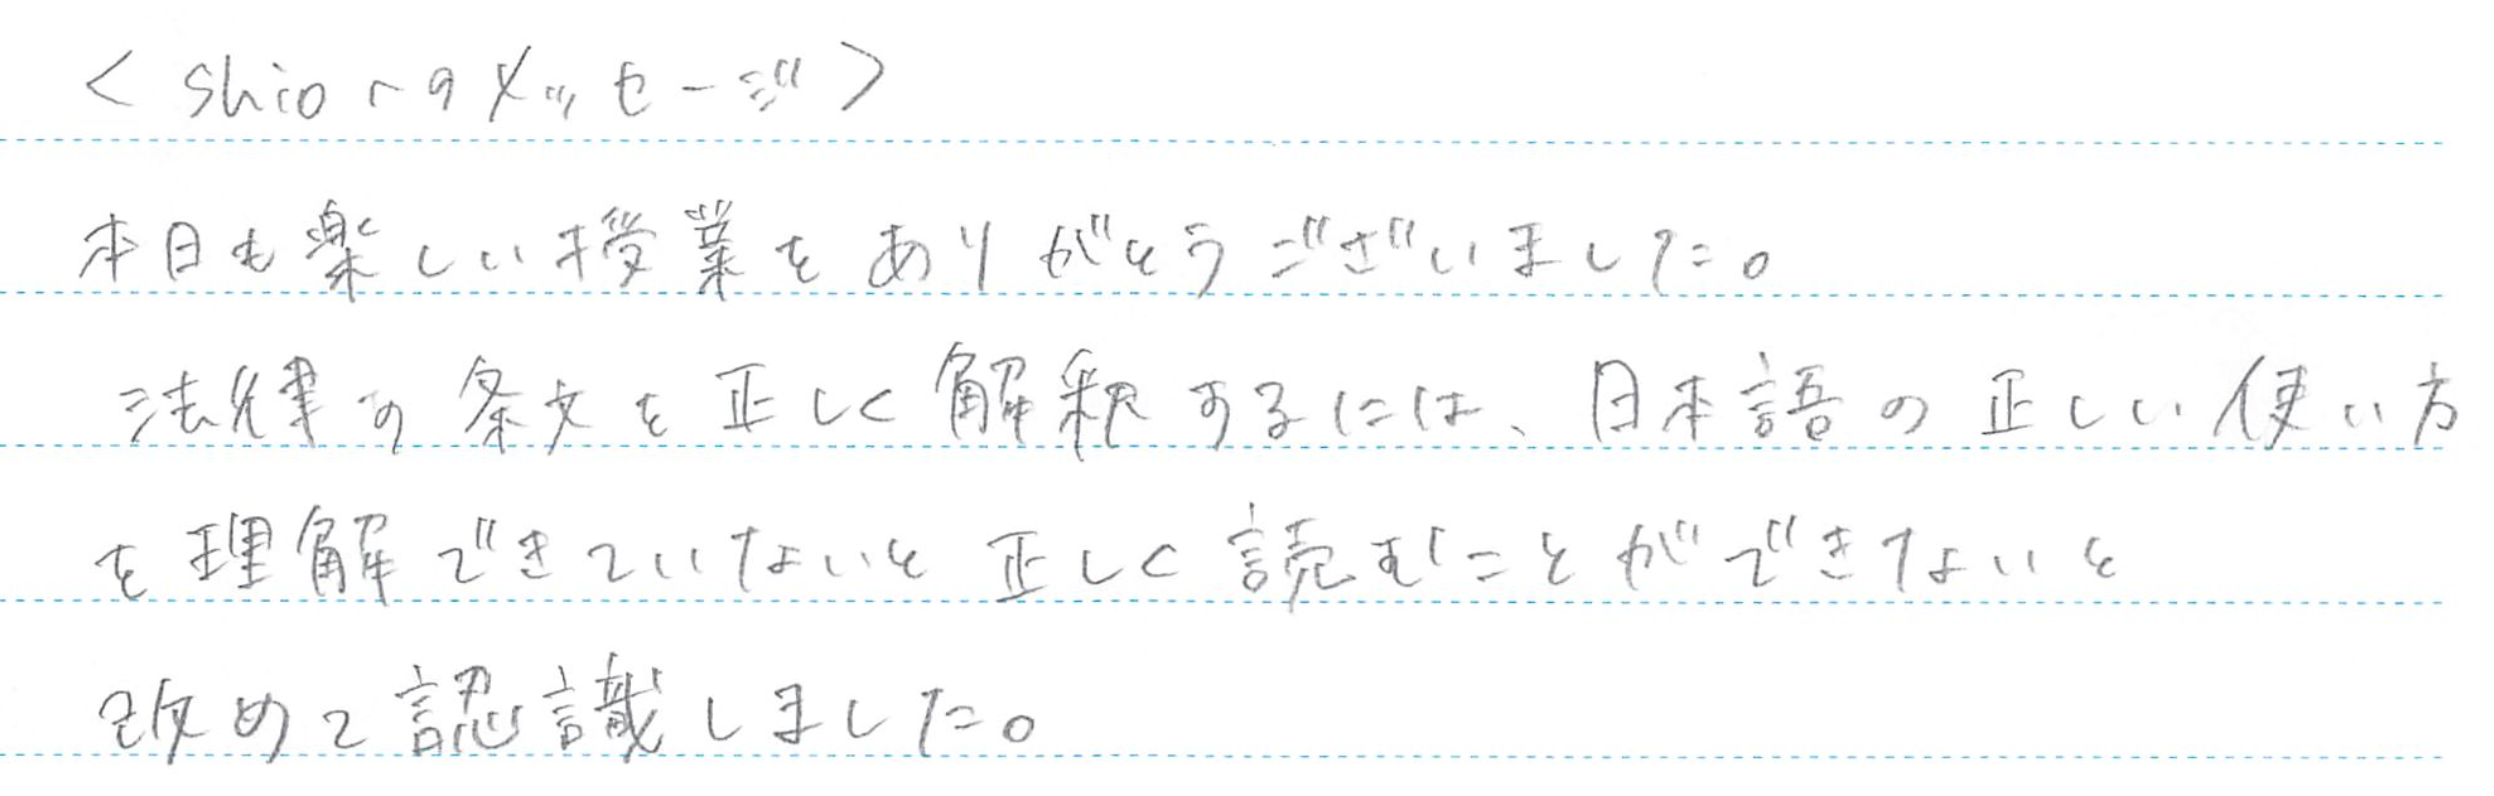 <shioへのメッセージ>
本日も楽しい授業をありがとうございました。
法律の条文を正しく解釈するには、日本語の正しい使い方
を理解できていないと正しく読むことができないと
改めて認識しました。